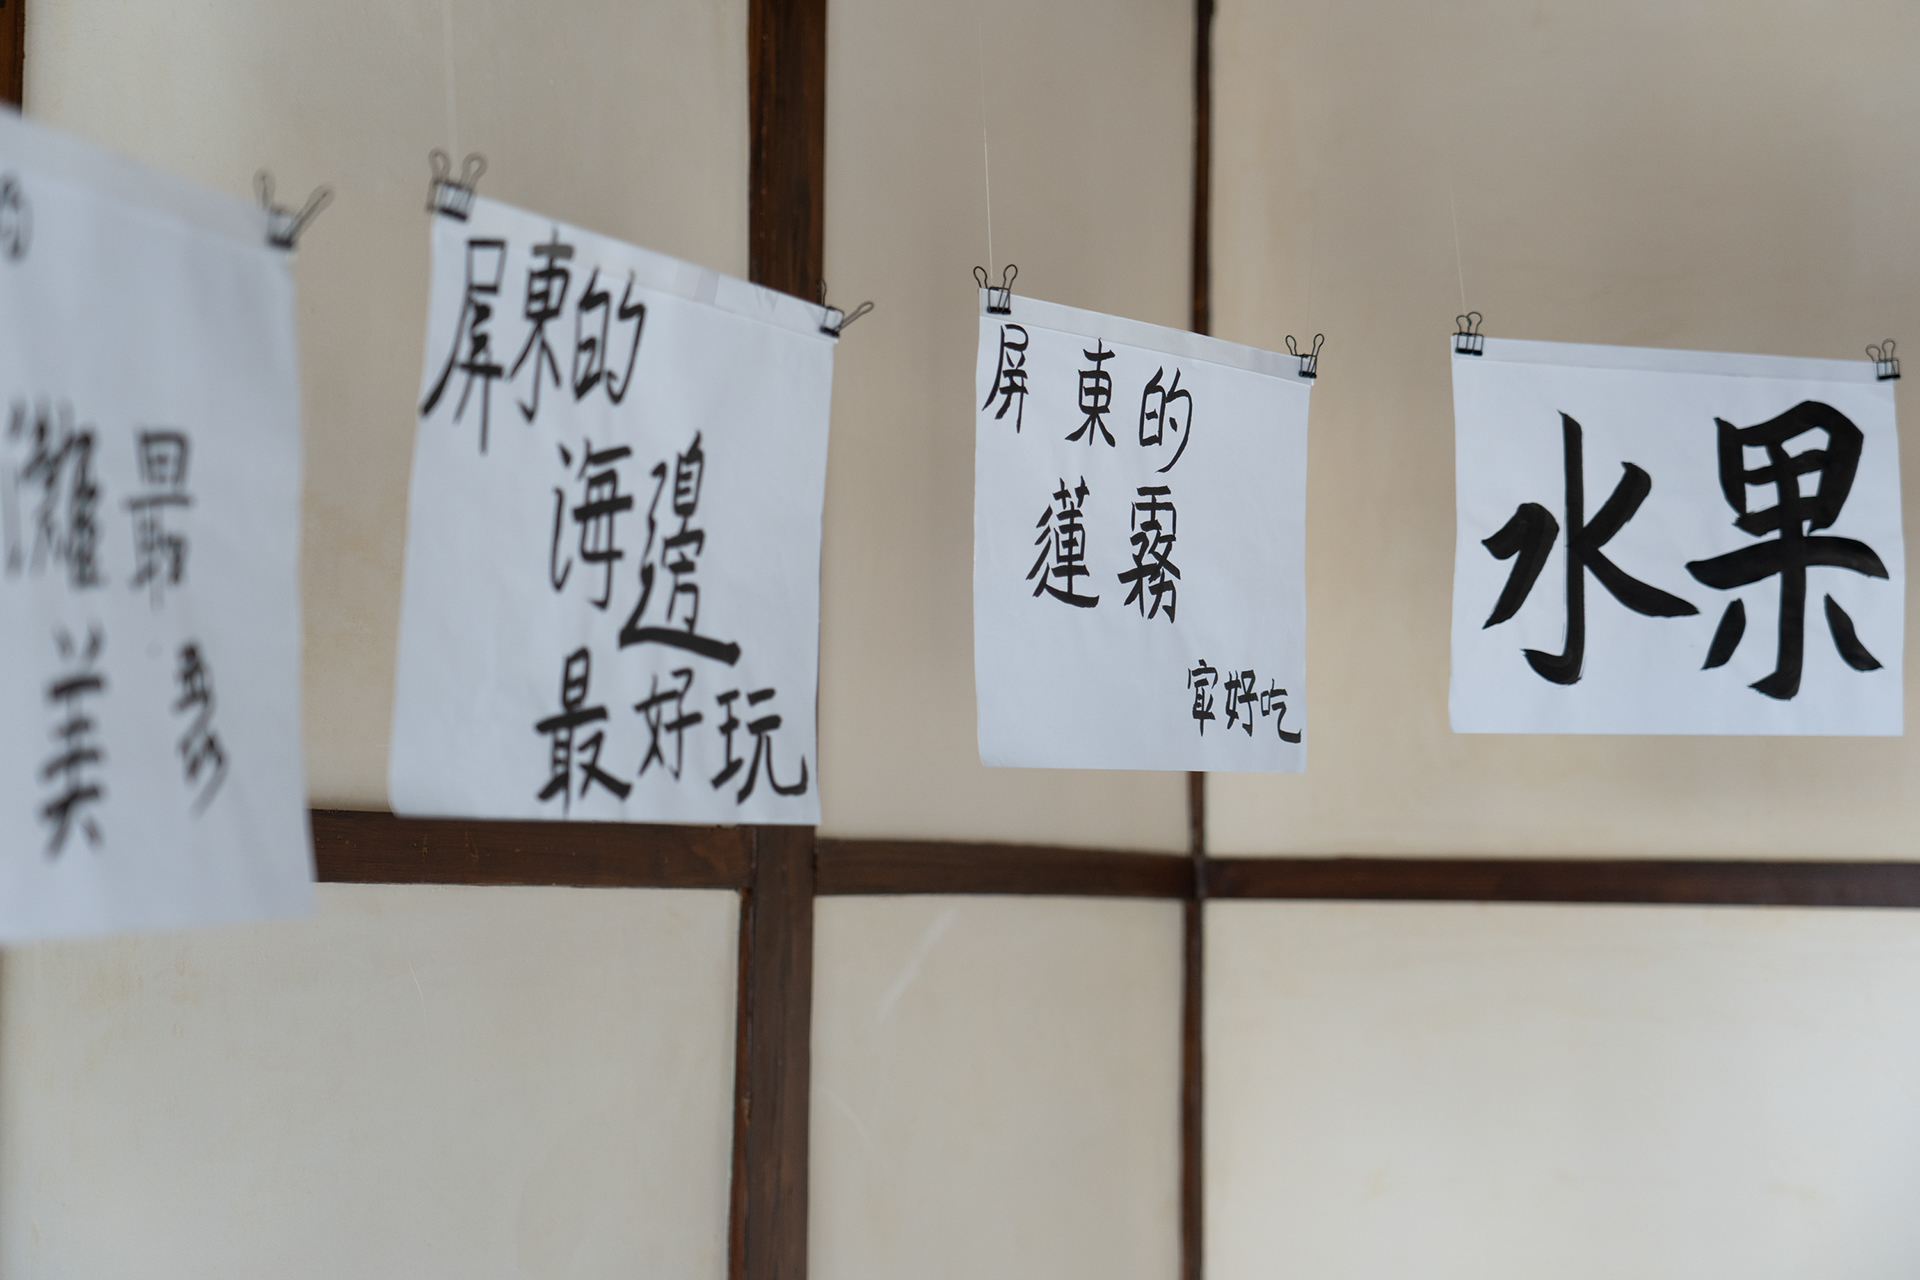 的
灘最
美
屏東的
海邊
最好玩
屏東的
蓮霧
冣好吃
水果